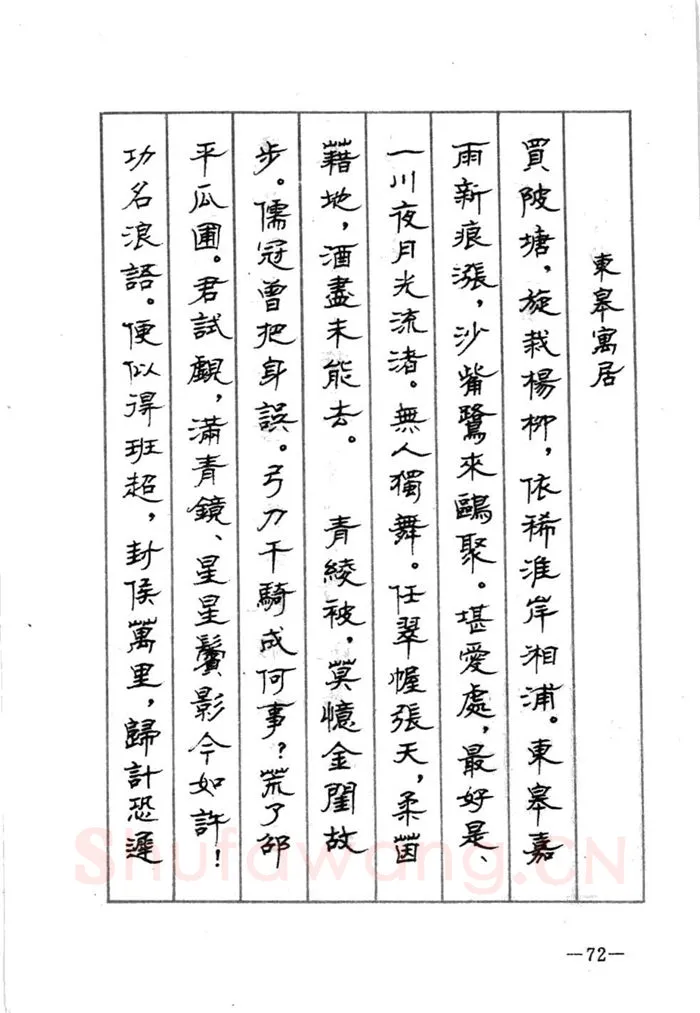 東皋寓居
買陂塘，旋栽楊柳，依稀淮岸湘浦。東皋嘉
雨新痕漲，沙觜鷺來鷗聚。堪愛處，最好是、
一川夜月光流渚。無人獨舞。任翠幄張天，柔茵
藉地，酒盡未能去。 青綾被，莫憶金閨故
步。儒冠曾把身誤。弓刀千騎成何事？荒了邵
平瓜圃。君試覷，滿青鏡、星星鬢影今如許！
功名浪語。便似得班超，封侯萬里，歸計恐遲
—72—
Shufawang.CN